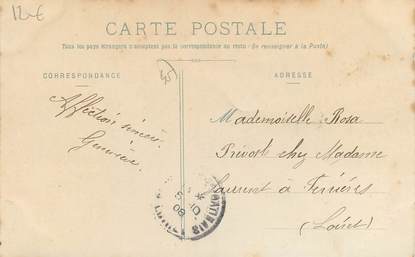 12 €
CARTE POSTALE
Tous les pays étrangers n'acceptent pas la correspondance au recto (Se renseigner à la Poste)
CORRESPONDANCE
45
ADRESSE
Affection sincère.
Geneviève.
Mademoiselle Rosa
Prévost chez Madame
Laurent à Ferrières
(Loiret)